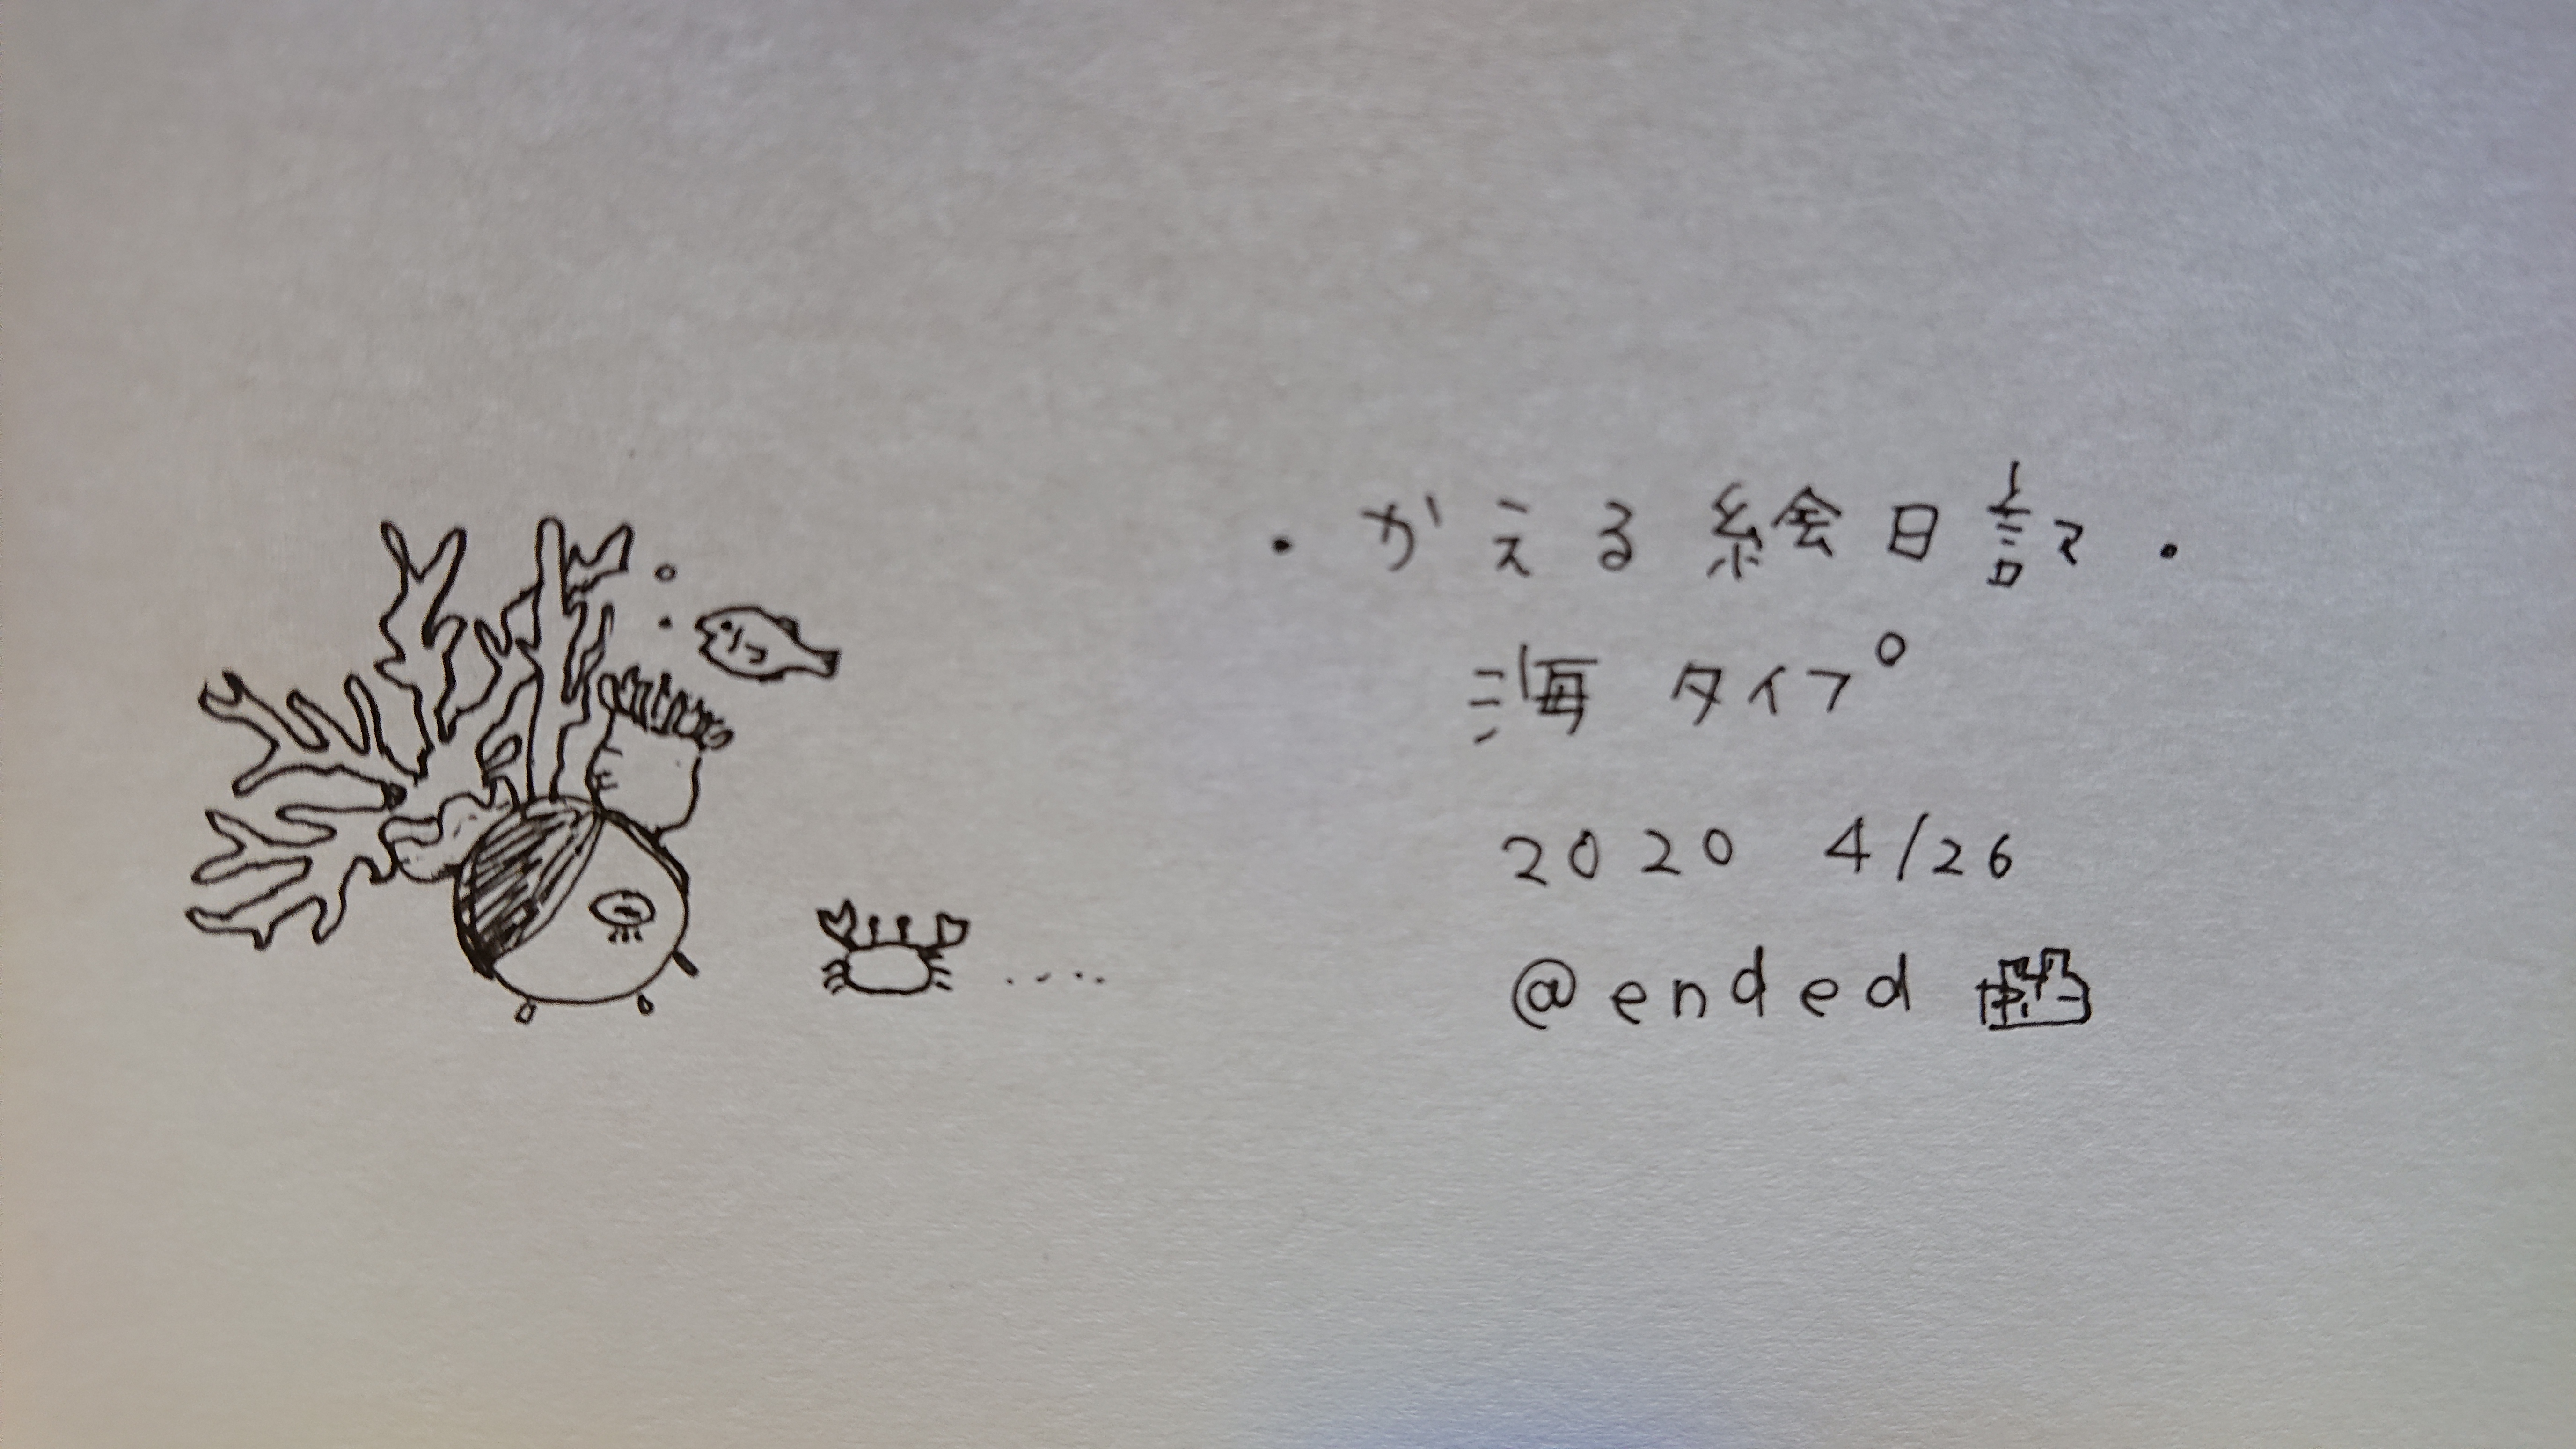 ・かえる絵日記・
海タイプ
2020 4/26
@ended